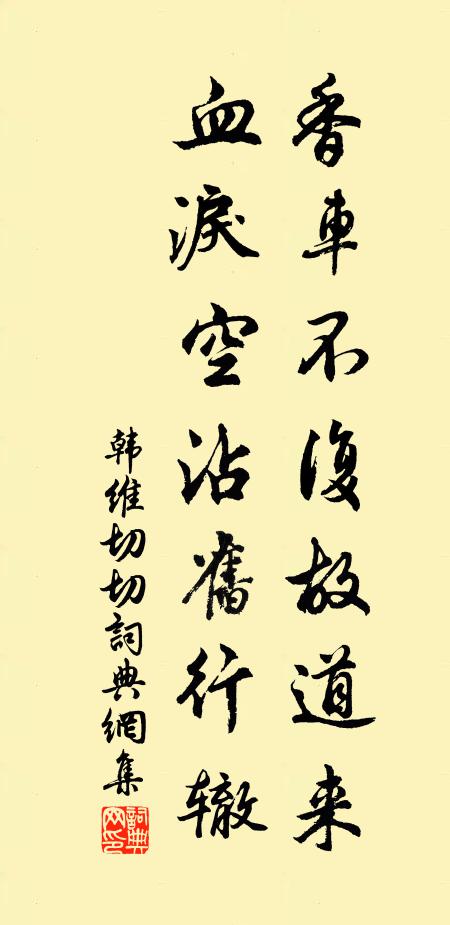 香車不復故道来
血淚空沾舊行辙
韩維切切詞典網集
詞典网印